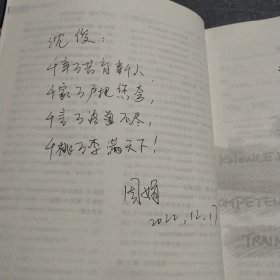 沈俊:
千辛万苦育新人
千家万户把您夸,
千言万语道不尽,
千桃万李满天下!
周娟
2022.12.17
KNOWLE
COMPETEN
TRAIN